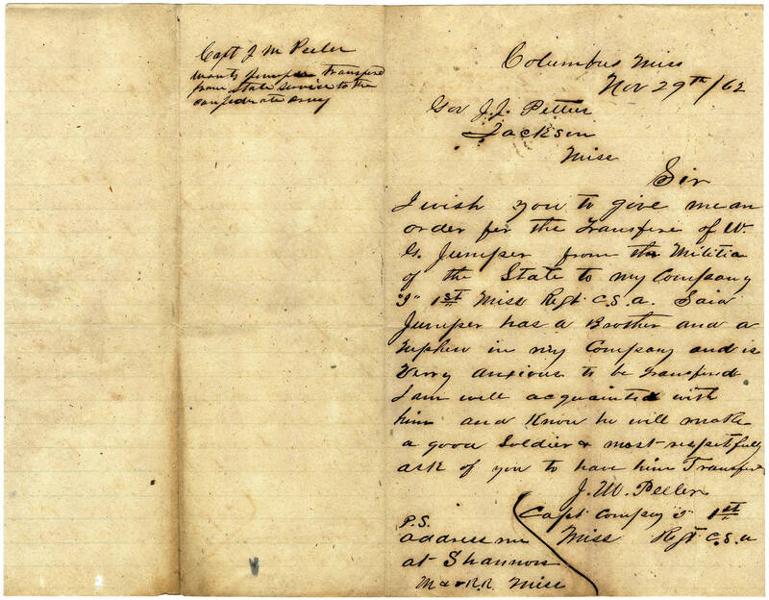 Capt J M Peeler
wants Jumper transfered
from State Service to the
confederate army
Columbus Miss
Nov 29th /62
Gov J. J. Pettus
Jackson
Miss
Sir
I wish you to give me an
order for the transfere of W.
G. Jumper from the Militia
of the State to my Company
"I" 1st Miss Regt C.S.a. Said
Jumper has a Brother and a
Nephew in my Company and is
Verry anxious to be transfered
I am well acquainted with
him and Know he will make
a good Soldier & most respetfully
ask of you to have him Transfered
J. M. Peeler
Capt Company "I" 1st
Miss Regt C.S.a
P.S.
address me
at Shannon
M & O R.R. Miss